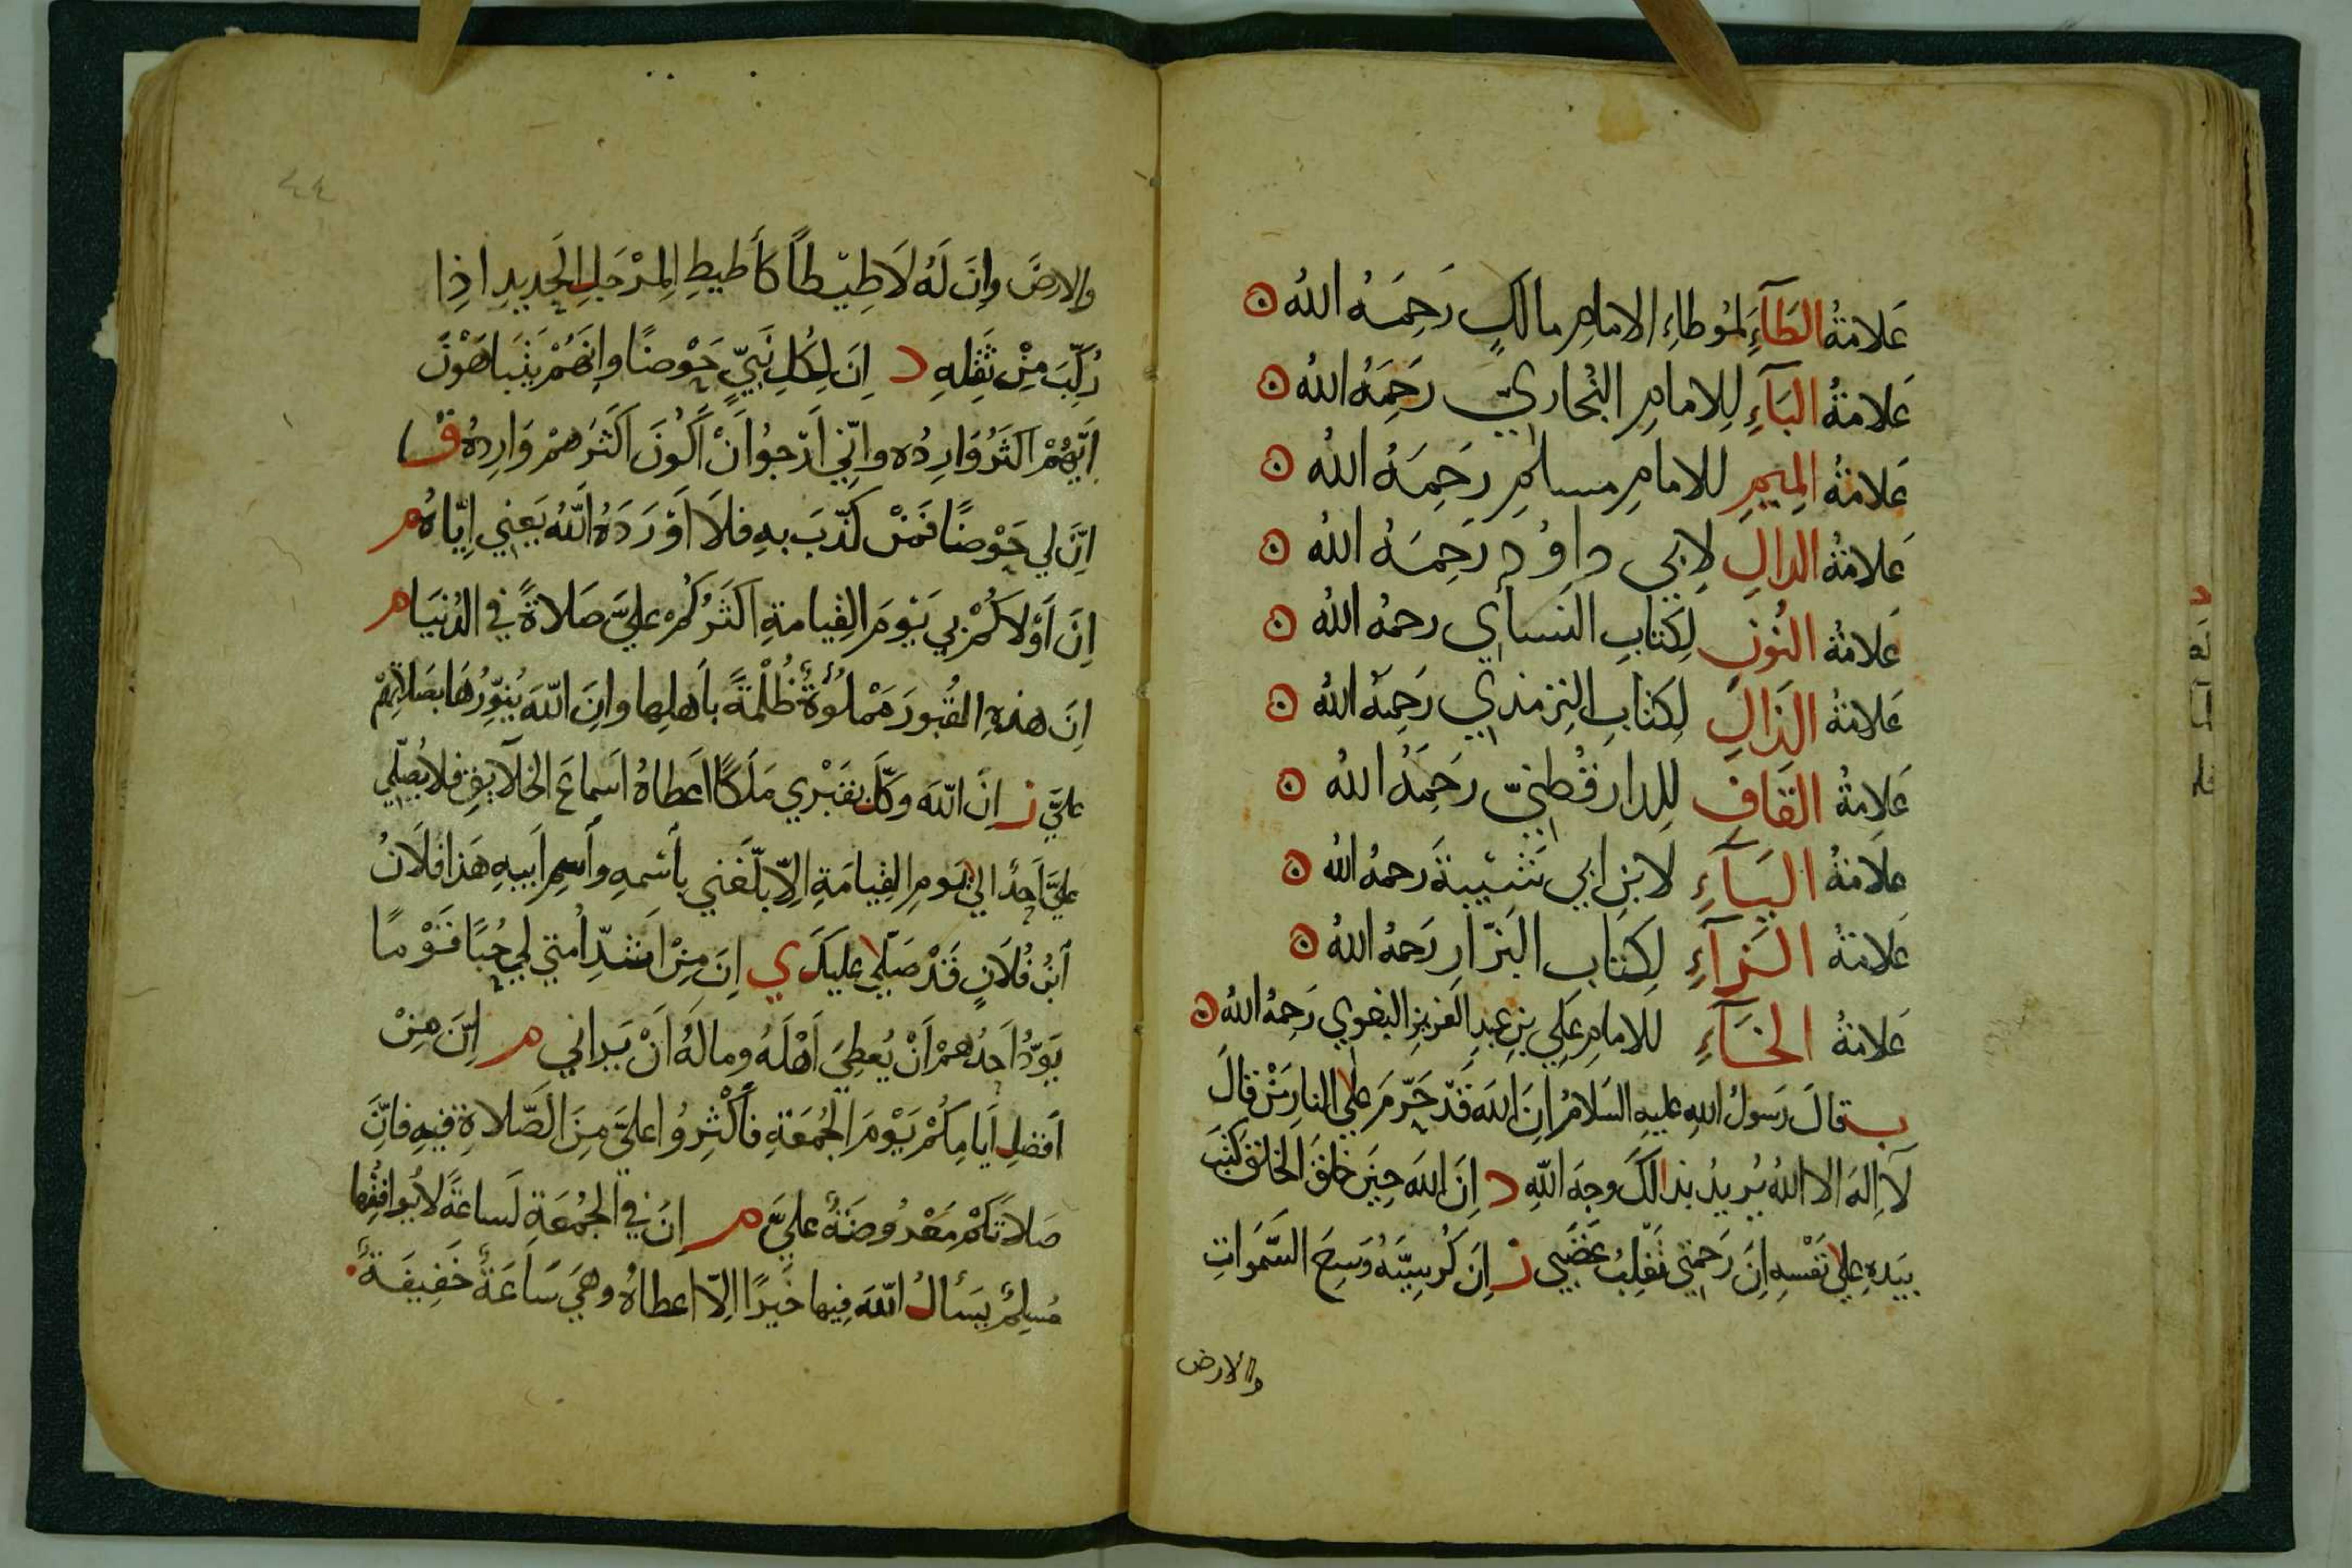 عَلامَةُ الطَآءِ لمُوطاءِ الامامِ مالكٍ رَحِمَهُ اللهُ
عَلامَةُ البَآءِ لِلامامِ البُخاريّ رَحِمَهُ اللهُ
عَلامَةُ المِيمِ للامامِ مسلمٍ رَحِمَهُ اللهُ
عَلامَةُ الدالِ لابي داوُد رَحِمَهُ اللهُ
عَلامَةُ النُونِ لِكتابِ النَسائي رحمهُ اللهُ
عَلامَةُ الذَالِ لِكتابِ الترمذي رَحِمهُ اللهُ
عَلامَةُ القَافِ لِلدارقُطنيّ رَحِمَهُ اللهُ
علامَةُ اليَآءِ لابنِ ابي شَيْبةَ رحمهُ الله
عَلامَةُ الزآءِ لِكتَابِ البَزّارِ رَحمهُ اللهُ
عَلامَةُ الخَآءِ للامامِ عَلي بنِ عبدِ العَزيزِ البغوي رَحِمهُ اللهُ
ب قالَ رَسولُ اللهِ عليهِ السَلامُ اِنَ اللهَ قَدْ حَرّمَ على النارِ مَنْ قالَ
لآ اِلهَ الا اللهُ يُريدُ بذالكَ وجهَ اللهِ د اِنَ اللهَ حِينَ خلقَ الخلقَ كتبَ
بيَدِهِ على نَفْسِهِ اِنَ رَحمتي تَغلِبُ غضَبي ز اِنَ كُرسيَّهُ وَسِعَ السَّمَواتِ
والارض
والارضَ وانَ لَهُ لاَطِيْطاً كأطيطِ المِرْجَلِ الجَديدِ اذِا
رُكِّبَ مِنْ ثقلِهِ د اِنَ لِكُلِ نَبيٍّ حَوْضًا وانَهُمْ يَتَباهَوْنَ
اَيّهُمْ اكثَرُ وَارِدُه وانّي اَرْجُوا اَنْ اَكُونَ اَكثَرَهمْ وَارِدهُ ق
اِنَّ لي حَوْضًا فمَنْ كذّبَ بهِ فلاَ اَوْرَدَهُ اللهُ يَعني ايّاهُ م
اِنَ اَوْلاَكُمْ بي يَوْمَ القِيامةِ اكثَرُكُمْ عليَّ صَلاةً في الدُنيَا م
اِنَ هذهِ القُبورَ مَمْلُؤةٌ ظُلْمةً بأهلِها وانَ اللهَ يُنوِّرُهَا بصَلاتِهمْ
عليَّ ز انَ اللهَ وَكَّلَ بقَبْري مَلَكًا اَعطاهُ اَسماعَ الخلآيقِ فلايُصَلّي
عليَّ اَحدٌ الي يَومِ القِيامَةِ الاّ بلّغني بأسْمهِ وأسمِ اَبيهِ هَذا فلانُ
اَبْنُ فُلاَنٍ قَدْ صَلّى عليكَ ي اِنَ مِنْ اَشدِّ اُمتي لي حُبًا قَوْمًا
يَوَدُّ اَحَدُهمْ اَنْ يُعطِيَ اَهْلَهُ ومالَهُ اَنْ يَراني م اِنَّ مِنْ
اَفضَلِ اَيامِكُمْ يَوْمَ الجُمُعَةِ فأَكْثِرُوا عليَّ مِنَ الصَّلاةِ فيهِ فانَّ
صَلاتَكمْ مَعْرُوضَةٌ عليَّ م اِنَ في الجُمُعَةِ لَساعَةً لايُوافقُها
مُسلِمٌ يسَأَلُ اللهَ فيها خَيرًا الاّ اعطاهُ وهيَ سَاعَةٌ خَفِيفَةٌ